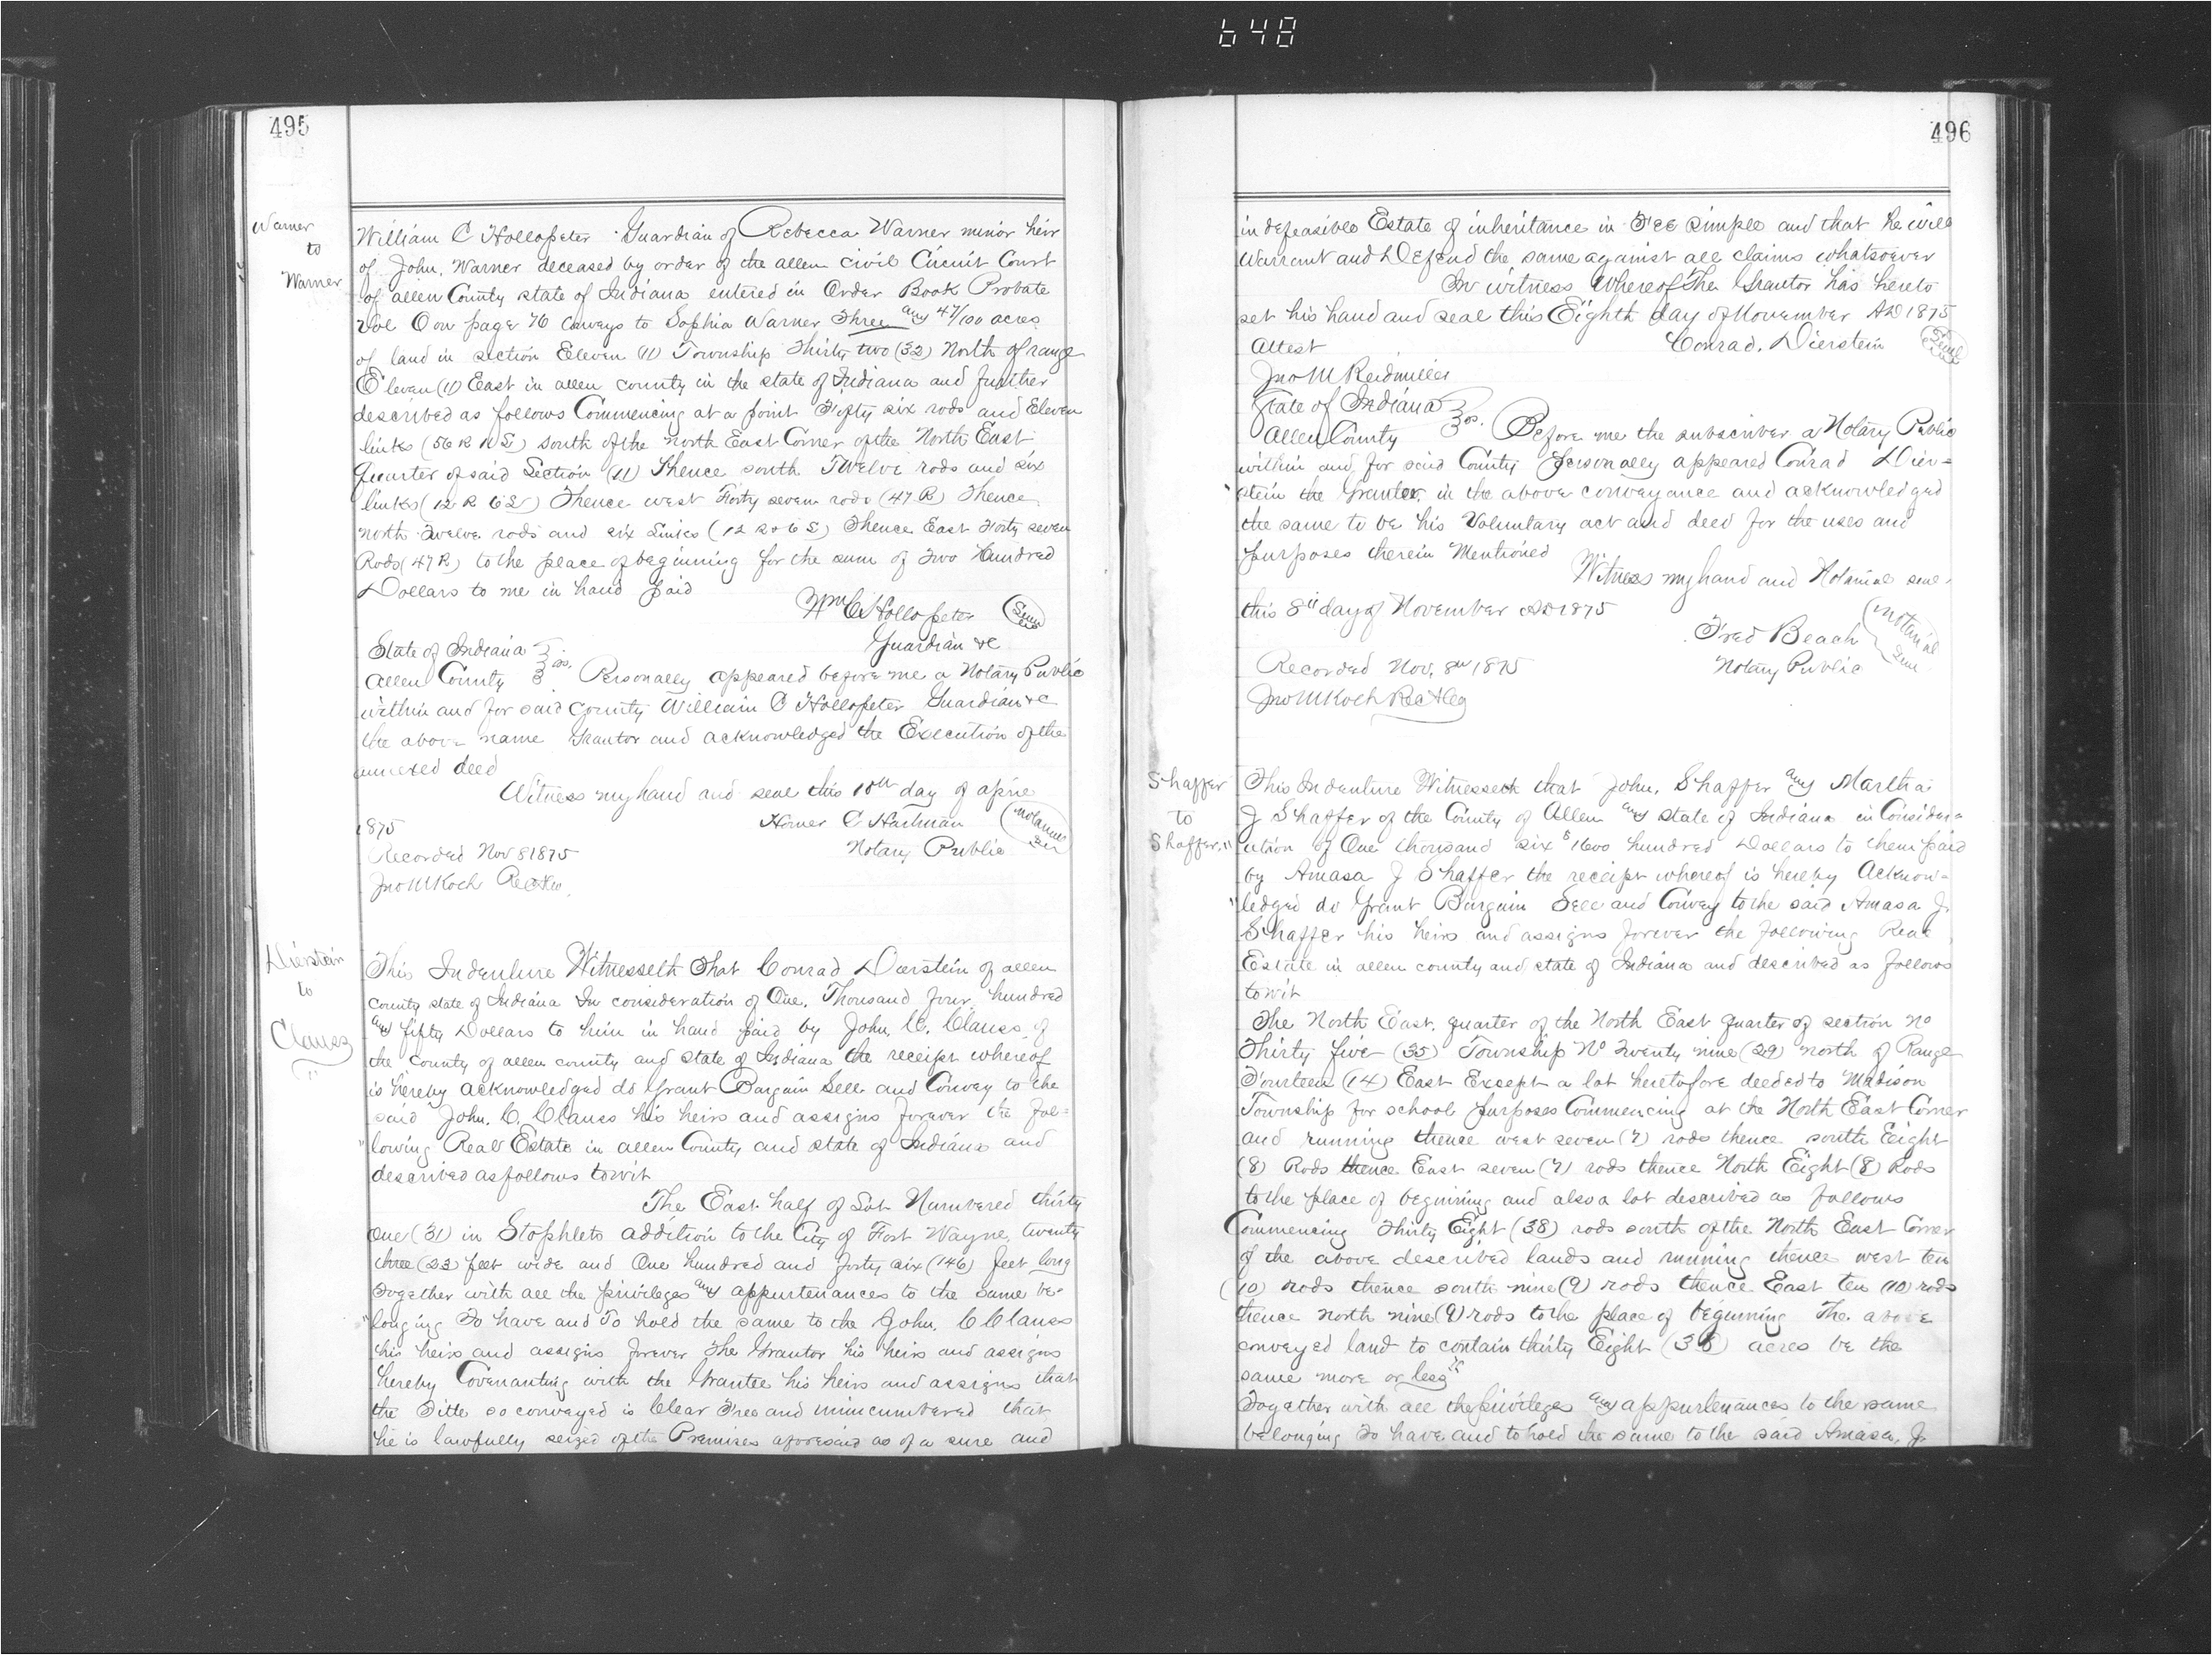 648
495
Warner
to
Warner
William C Hollopeter Guardian of Rebecca Warner minor heir
of John. Warner deceased by order of the allen civil Circuit Court
of allen County state of Indiana entered in Order Book Probate
Vol O on page 76 Conveys to Sophia Warner Three and 47/100 acres
of land in section Eleven (11) Township Thirty two (32) North of range
Eleven (11) East in allen county in the state of Indiana and further
described as follows Commencing at a point Fifty six rods and Eleven
links (56 R 11 L) south of the north East Corner of the North East
quarter of said Section (11) Thence south Twelve rods and six
links (12 R 6 L) Thence west Forty seven rods (47 R) Thence
north Twelve rods and six Links (12 R & 6 L) Thence East Forty seven
Rods (47 R) to the place of beginning for the sum of Two Hundred
Dollars to me in hand paid
Wm C Hollopeter (Seal)
Guardian &c
State of Indiana
Allen County ss. Personally appeared before me a Notary Public
within and for said County William C Hollopeter Guardian &c
the above name Grantor and acknowledged the Execution of the
annexed deed
Witness my hand and seal this 10th day of april
1875
Homer C Hartman (Notarial
Notary Public Seal)
Recorded Nov 8 1875
Jno M Koch Rec
Dierstein
to
Clauss
"
This Indenture Witnesseth That Conrad Dierstein of allen
County state of Indiana In consideration of One. Thousand four hundred
and fifty Dollars to him in hand paid by John. C. Clauss of
the County of allen county and state of Indiana the receipt whereof
is hereby acknowledged do Grant Bargain Sell and Convey to the
said John. C. Clauss his heirs and assigns forever the fol=
"lowing Real Estate in allen County and state of Indiana and
described as follows towit
The East half of Lot Numbered thirty
One (31) in Stophlets addition to the City of Fort Wayne, twenty
three (23) feet wide and One hundred and forty six (146) feet long
Together with all the privileges and appurtenances to the same be-
"longing To have and To hold the same to the John. C Clauss
his heirs and assigns forever The Grantor his heirs and assigns
hereby Covenanting with the Grantee his heirs and assigns that
the Title so conveyed is Clear Free and unincumbered that
he is lawfully seized of the Premises aforesaid as of a sure and
496
indefeasible Estate of inheritance in Fee Simple and that he will
Warrant and Defend the same against all claims whatsoever
In witness Whereof The Grantor has hereto
set his hand and seal this Eighth day of November AD 1875
Attest Conrad. Dierstein (Seal)
Jno M Reidmiller
State of Indiana
Allen County ss. Before me the subscriber a Notary Public
within and for said County personally appeared Conrad Dier=
"stein the Grantor in the above conveyance and acknowledged
the same to be his Voluntary act and deed for the uses and
purposes therein Mentioned
Witness my hand and Notarial seal
this 8th day of November AD 1875
Fred Beach (Notarial
Notary Public Seal)
Recorded Nov. 8th 1875
Jno M Koch Rec
Shaffer
to
Shaffer. "
This Indenture Witnesseth that John. Shaffer and Martha
J Shaffer of the County of Allen and state of Indiana in Consider=
ation of One thousand six $1600 hundred Dollars to them paid
by Amasa J Shaffer the receipt whereof is hereby Acknow=
"ledged do Grant Bargain Sell and Convey to the said Amasa J.
Shaffer his heirs and assigns forever the following Real
Estate in allen county and state of Indiana and described as follows
towit
The North East. quarter of the North East quarter of section No
Thirty five (35) Township No Twenty nine (29) north of Range
Fourteen (14) East Except a lot heretofore deeded to Madison
Township for school purposes Commencing at the North East Corner
and running thence west seven (7) rods thence south Eight
(8) Rods thence East seven (7) rods thence North Eight (8) Rods
to the place of beginning and also a lot described as follows
Commencing Thirty Eight (38) rods south of the North East Corner
of the above described lands and running thence west ten
(10) rods thence south nine (9) rods thence East ten (10) rods
thence north nine (9) rods to the place of beginning The. above
conveyed land to contain thirty Eight (38) acres be the
same more or less
Together with all the privileges and appurtenances to the same
belonging To have and to hold the same to the said Amasa. J.